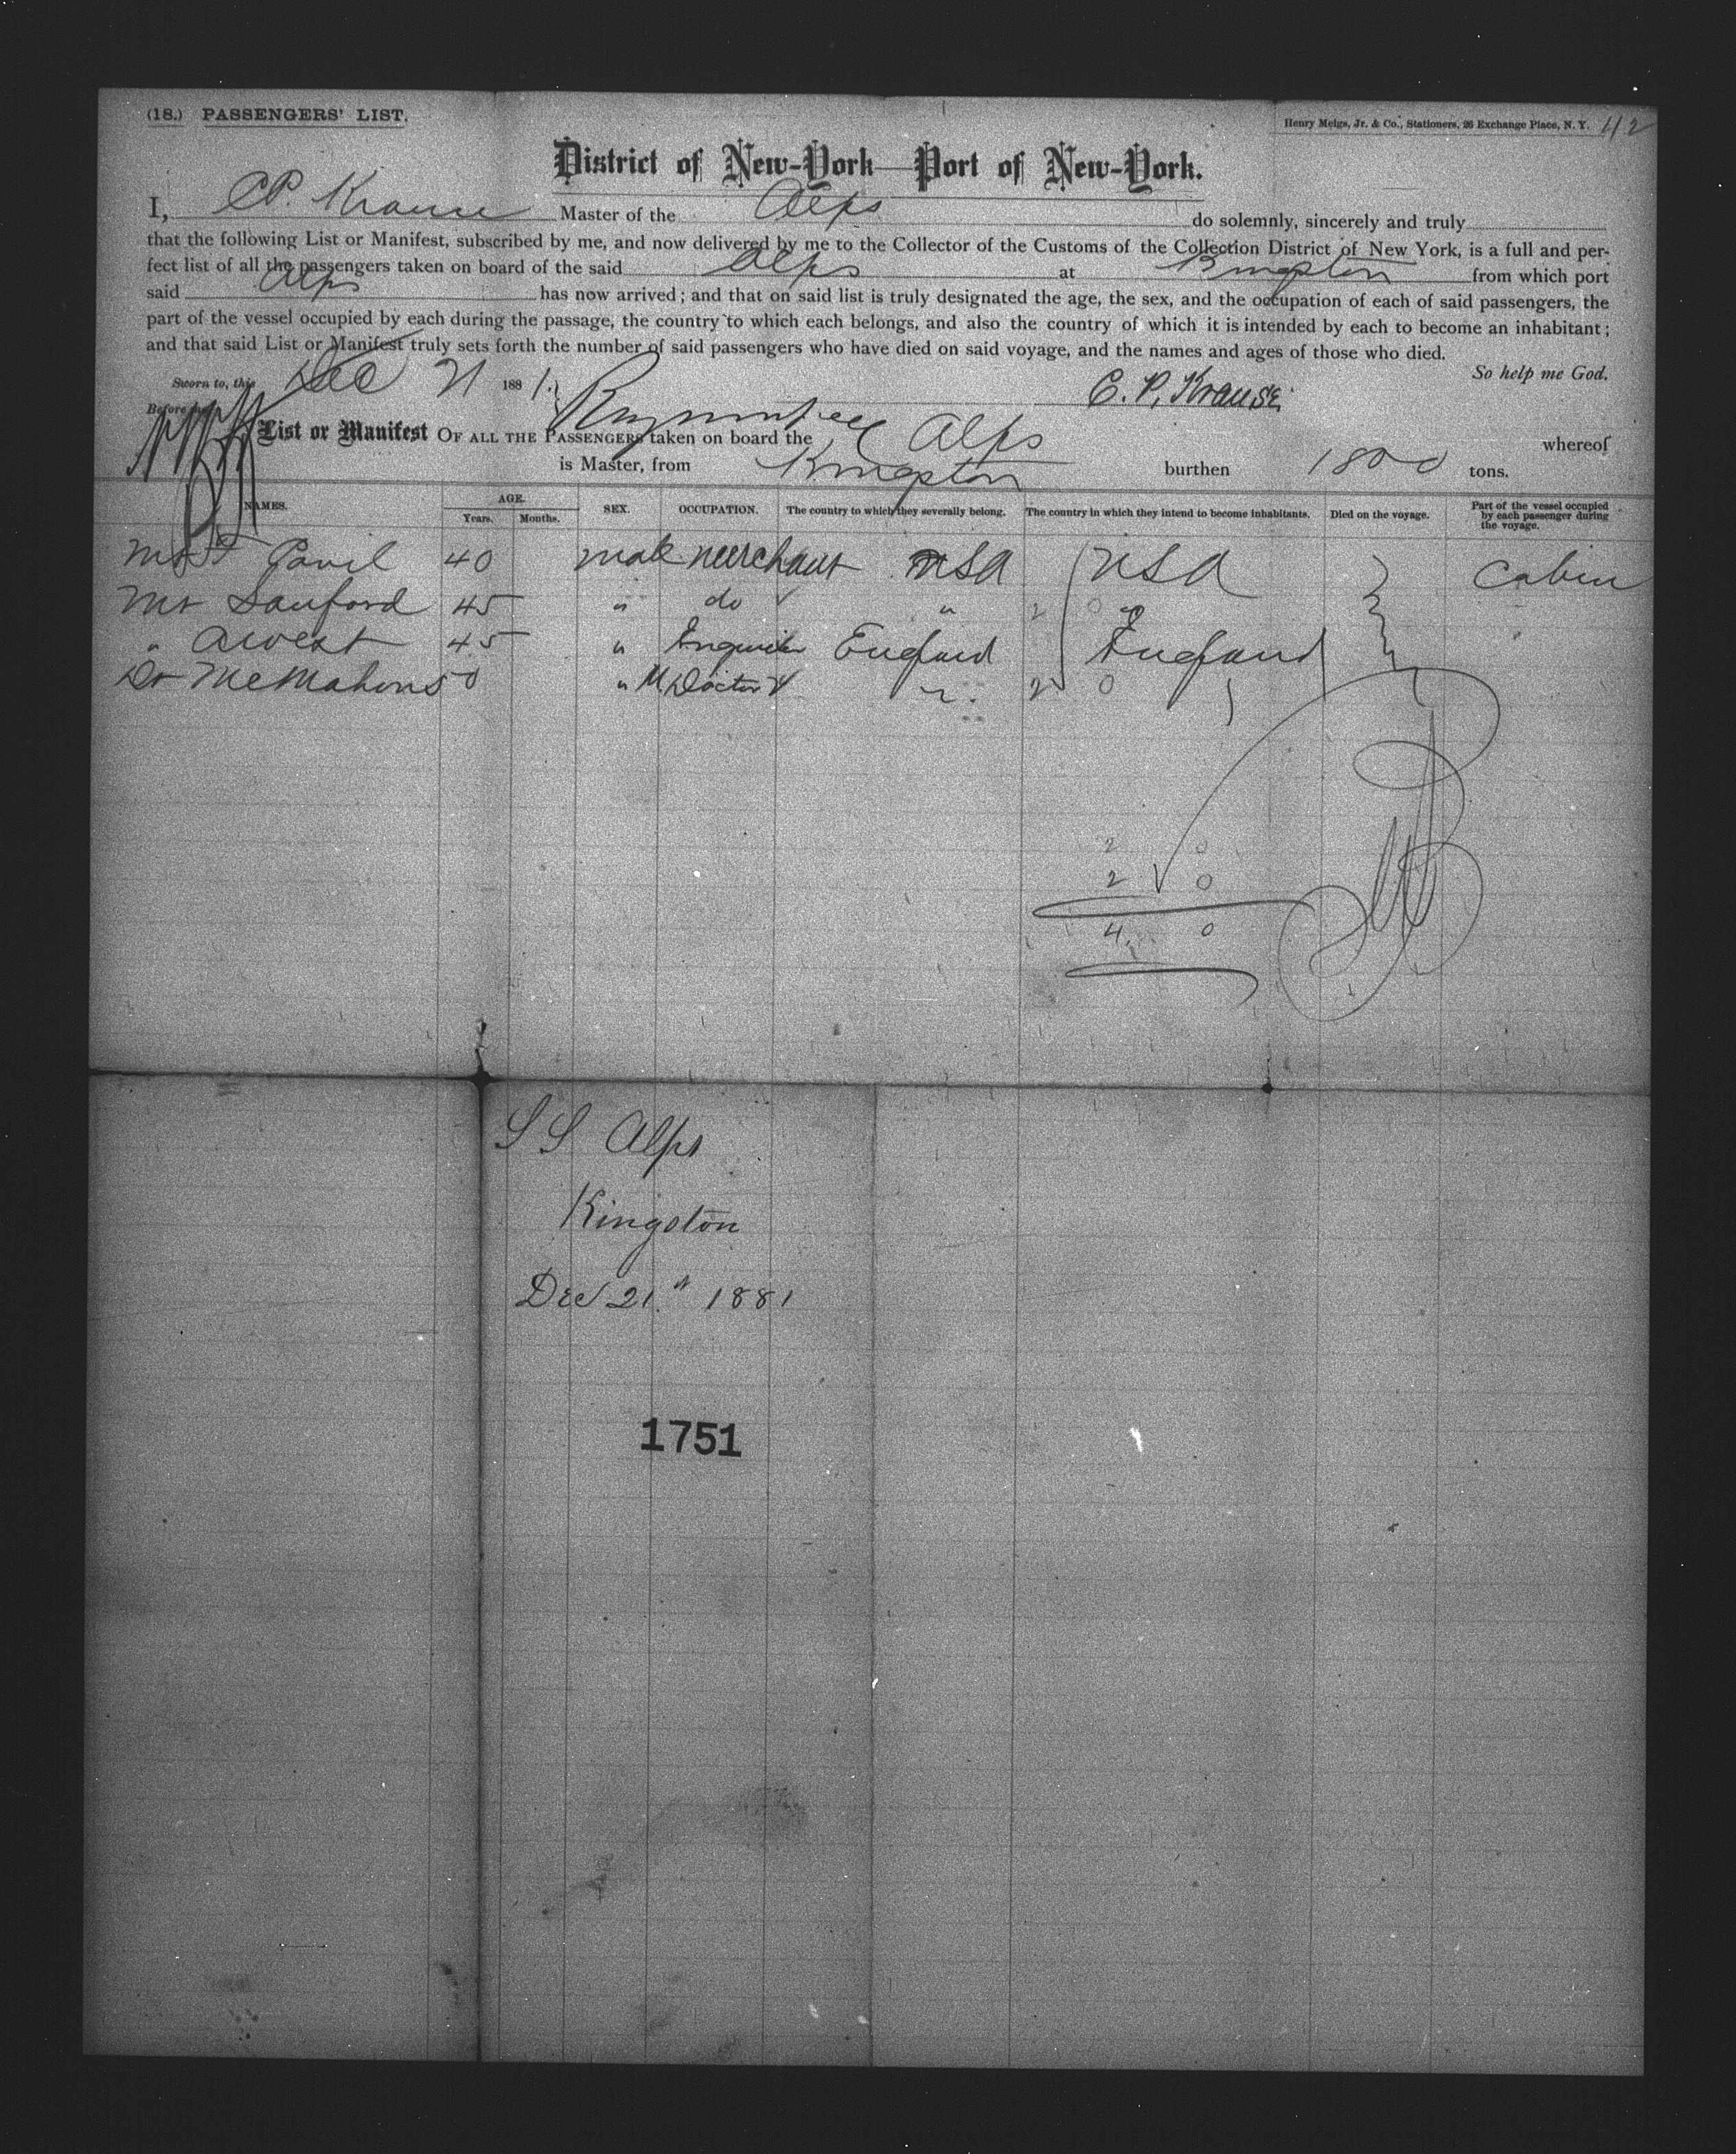 (18.) PASSENGERS' LIST.
Henry Meigs, Jr. & Co., Stationers, 26 Exchange Place, N. Y. 42
District of New-York—Port of New-York.
I, C.P. Krause Master of the Alps do solemnly, sincerely and truly
that the following List or Manifest, subscribed by me, and now delivered by me to the Collector of the Customs of the Collection District of New York, is a full and per-
fect list of all the passengers taken on board of the said Alps at Kingston from which port
said Alps has now arrived; and that on said list is truly designated the age, the sex, and the occupation of each of said passengers, the
part of the vessel occupied by each during the passage, the country to which each belongs, and also the country of which it is intended by each to become an inhabitant;
and that said List or Manifest truly sets forth the number of said passengers who have died on said voyage, and the names and ages of those who died.
So help me God.
Sworn to, this Dec 21 1881. C. P. Krause
Before me
List or Manifest OF ALL THE PASSENGERS taken on board the Alps whereof
is Master, from Kingston burthen 1800 tons.
NAMES. AGE. Years. Months. SEX. OCCUPATION. The country to which they severally belong. The country in which they intend to become inhabitants. Died on the voyage. Part of the vessel occupied by each passenger during the voyage.
40 male merchant USA USA Cabin
Mr Sanford 45 " do " 2 0
" A West 45 " England England
Dr McMahon 50 " M. Doctor " 2 0
2 0
2 0
4 0
S S Alps
Kingston
Dec 21st 1881
1751